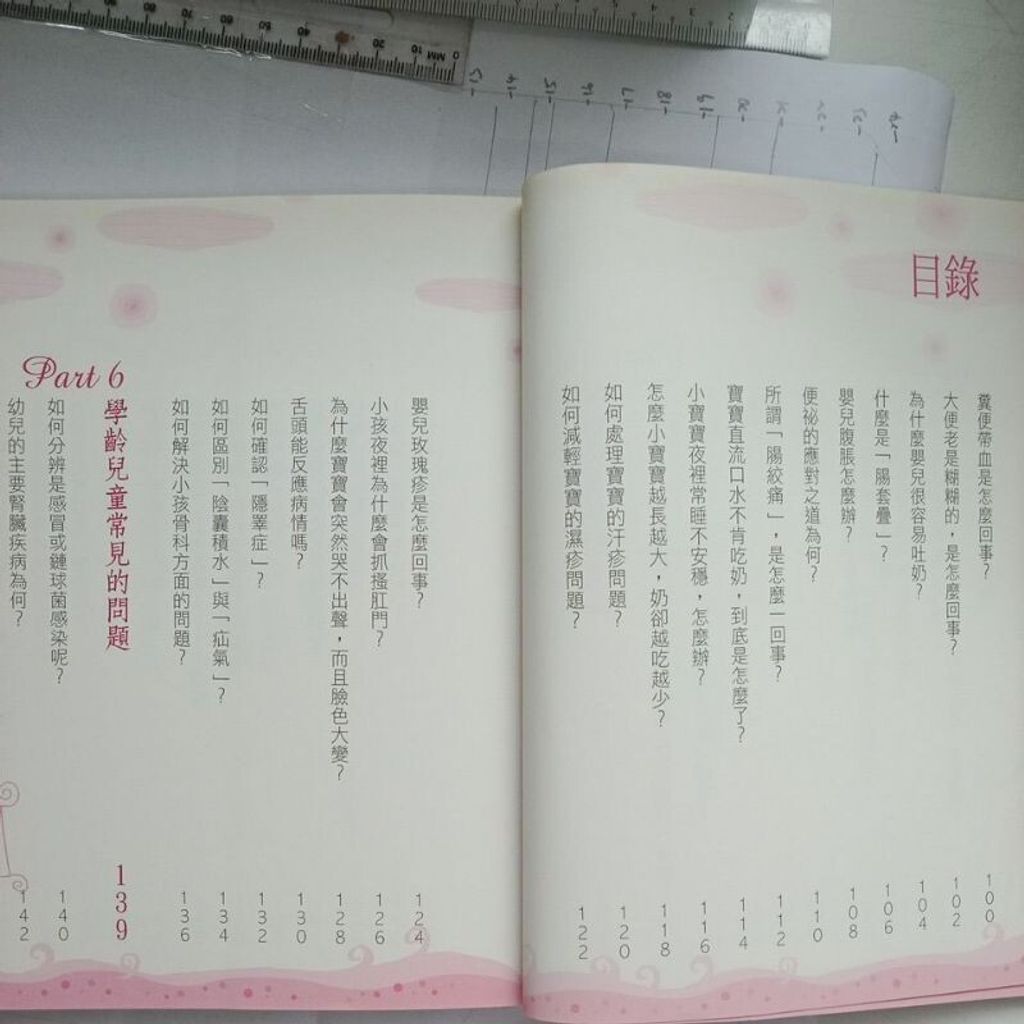 目錄
糞便帶血是怎麼回事？
100
大便老是糊糊的，是怎麼回事？
102
為什麼嬰兒很容易吐奶？
104
什麼是「腸套疊」？
106
嬰兒腹脹怎麼辦？
108
便祕的應對之道為何？
110
所謂「腸絞痛」，是怎麼一回事？
112
寶寶直流口水不肯吃奶，到底是怎麼了？
114
小寶寶夜裡常睡不安穩，怎麼辦？
116
怎麼小寶寶越長越大，奶卻越吃越少？
118
如何處理寶寶的汗疹問題？
120
如何減輕寶寶的濕疹問題？
122
嬰兒玫瑰疹是怎麼回事？
124
小孩夜裡為什麼會抓搔肛門？
126
為什麼寶寶會突然哭不出聲，而且臉色大變？
128
舌頭能反應病情嗎？
130
如何確認「隱睪症」？
132
如何區別「陰囊積水」與「疝氣」？
134
如何解決小孩骨科方面的問題？
136
Part 6
學齡兒童常見的問題
139
如何分辨是感冒或鏈球菌感染呢？
140
幼兒的主要腎臟疾病為何？
142